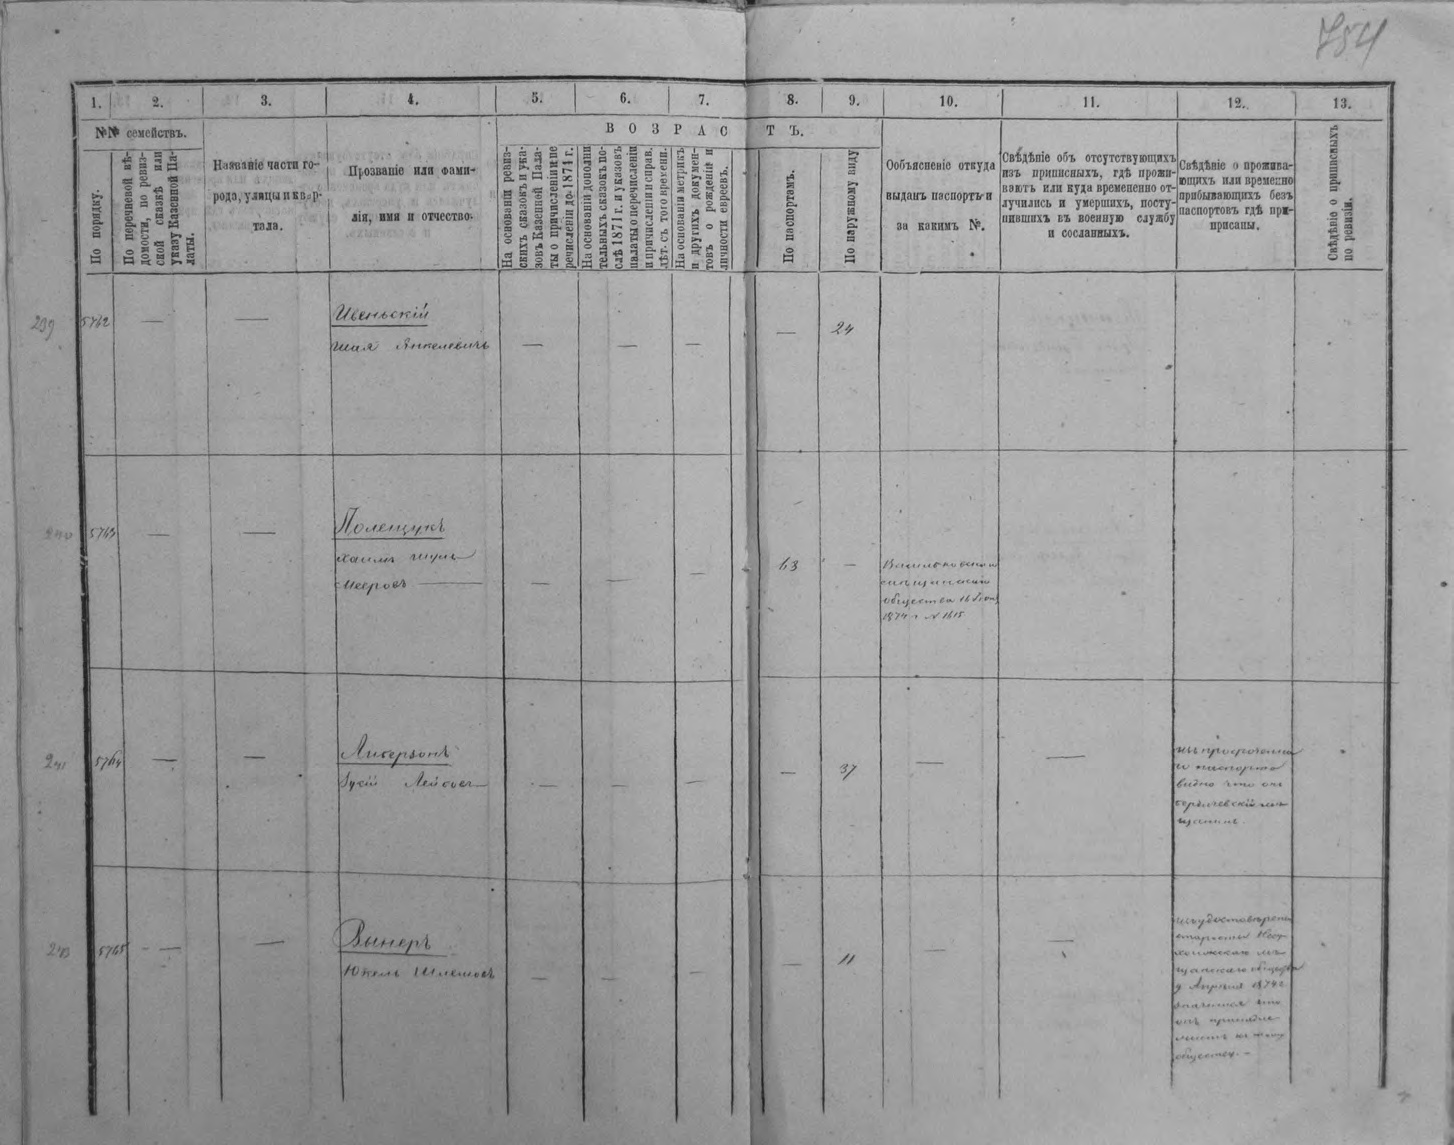 754
1. 2. 3. 4. 5. 6. 7. 8. 9. 10. 11. 12. 13.
№№ семействъ.
По порядку.
По перечневой вѣ-
домости, по ревиз-
ской сказкѣ или
указу Казенной Па-
латы.
Названіе части го-
рода, улицы и квар-
тала.
Прозваніе или фами-
лія, имя и отчество.
ВОЗРАСТЪ.
На основаніи ревиз-
скихъ сказокъ и ука-
зовъ Казенной Пала-
ты о причисленіи и пе
речисленіи до 1871 г.
На основаніи дополни
тельныхъ сказокъ по-
слѣ 1871 г. и указовъ
палаты о перечисленіи
и причисленіи и справ.
лѣт. съ того времени.
На основаніи метрикъ
и другихъ докумен-
товъ о рожденіи и
личности евреевъ.
По паспортамъ.
По наружному виду
Объясненіе откуда
выданъ паспортъ и
за какимъ №.
Свѣдѣніе объ отсутствующихъ
изъ приписныхъ, гдѣ прожи-
ваютъ или куда временно от-
лучились и умершихъ, посту-
пившихъ въ военную службу
и сосланныхъ.
Свѣдѣніе о прожива-
ющихъ или временно
прибывающихъ безъ
паспортовъ гдѣ при-
писаны.
Свѣдѣніе о приписныхъ
по ревизіи.
239 5762 — —
Ивеньскій
Шая Янкелевичъ — — — — 24
240 5763 — —
Полещукъ
Хаимъ
Мееровъ — — — — 63 —
Васильковскаго
мѣщанскаго
общества 16
1874 г № 1615
241 5764 — —
Либерзонъ
Лейбовъ — — — — 37 — —
изъ просроченна
го паспорта
видно что онъ
бердичевскій мѣ-
щанинъ.
5765 — — —
Винеръ
Юкель Шлемовъ — — — — 11 — —
изъ удостовѣрен
старосты
мѣ-
щанскаго общества
9 Апрѣля 1874 г
значится что
онъ принадле-
житъ къ тому
обществу. —